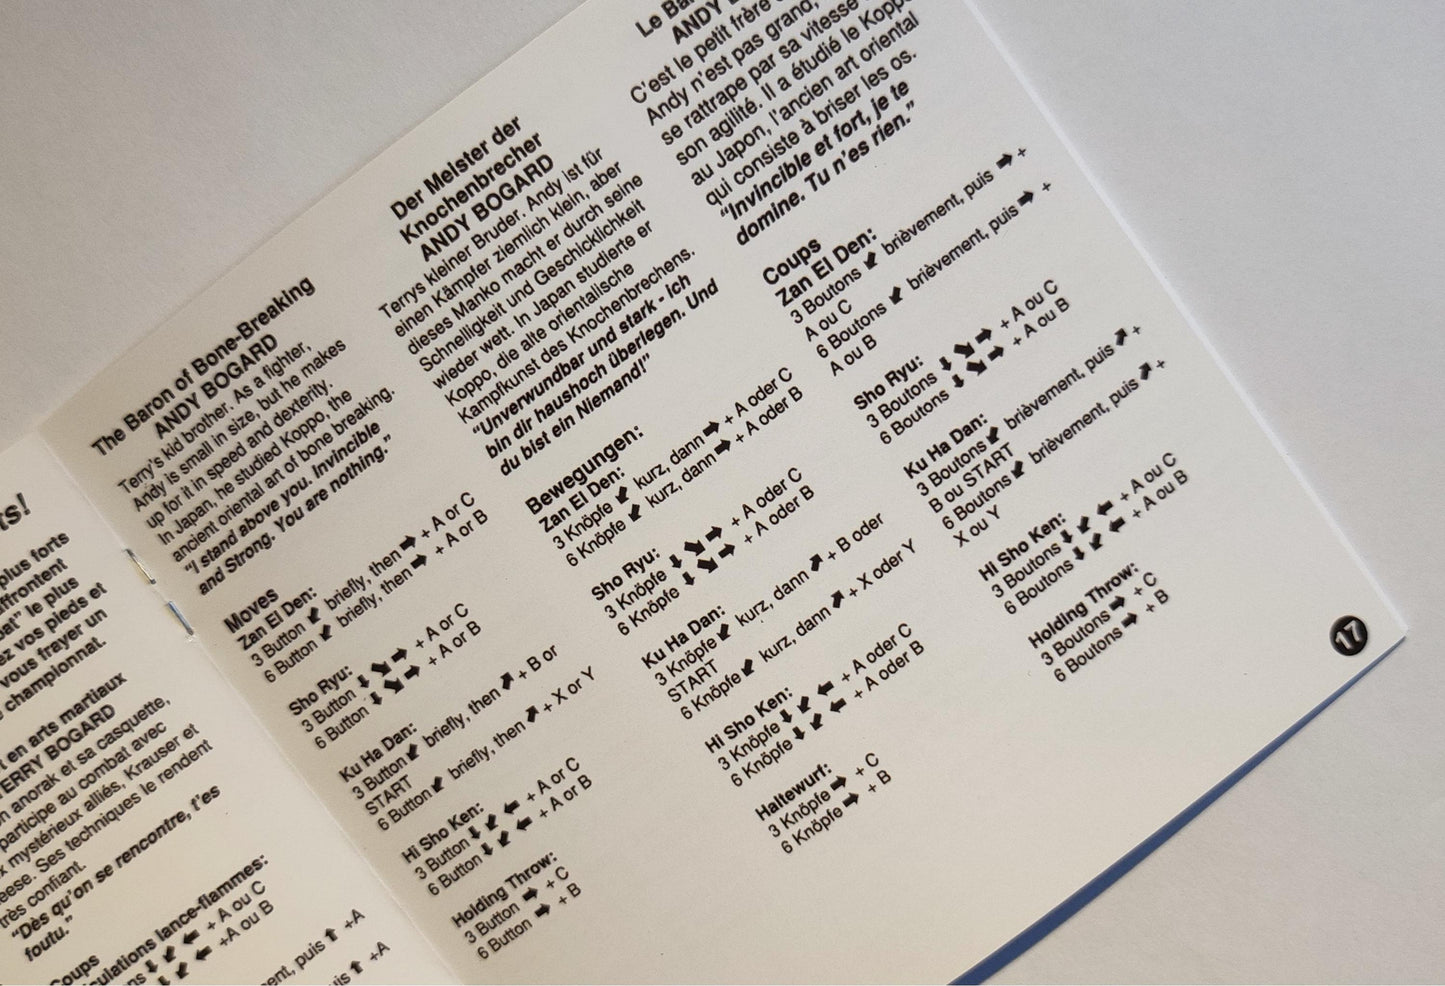 ts!
plus forts
affrontent
bat" le plus
ez vos pieds et
vous frayer un
championnat.
en arts martiaux
TERRY BOGARD
anorak et sa casquette,
participe au combat avec
mystérieux alliés, Krauser et
eese. Ses techniques le rendent
très confiant.
"Dès qu'on se rencontre, t'es
foutu."
Coups
culations lance-flammes:
⬇ ⬋ ⬅ + A ou C
⬇ ⬋ ⬅ +A ou B
ment, puis ⬆ +A
puis ⬆ +A
The Baron of Bone-Breaking
ANDY BOGARD
Terry's kid brother. As a fighter,
Andy is small in size, but he makes
up for it in speed and dexterity.
In Japan, he studied Koppo, the
ancient oriental art of bone breaking.
"I stand above you. Invincible
and Strong. You are nothing."
Moves
Zan El Den:
3 Button ⬋ briefly, then ➡ + A or C
6 Button ⬋ briefly, then ➡ + A or B
Sho Ryu:
3 Button ⬇ ⬊ ➡ + A or C
6 Button ⬇ ⬊ ➡ + A or B
Ku Ha Dan:
3 Button ⬋ briefly, then ⬈ + B or
START
6 Button ⬋ briefly, then ⬈ + X or Y
Hi Sho Ken:
3 Button ⬇ ⬋ ⬅ + A or C
6 Button ⬇ ⬋ ⬅ + A or B
Holding Throw:
3 Button ➡ + C
6 Button ➡ + B
Der Meister der
Knochenbrecher
ANDY BOGARD
Terrys kleiner Bruder. Andy ist für
einen Kämpfer ziemlich klein, aber
dieses Manko macht er durch seine
Schnelligkeit und Geschicklichkeit
wieder wett. In Japan studierte er
Koppo, die alte orientalische
Kampfkunst des Knochenbrechens.
"Unverwundbar und stark - ich
bin dir haushoch überlegen. Und
du bist ein Niemand!"
Bewegungen:
Zan El Den:
3 Knöpfe ⬋ kurz, dann ➡ + A oder C
6 Knöpfe ⬋ kurz, dann ➡ + A oder B
Sho Ryu:
3 Knöpfe ⬇ ⬊ ➡ + A oder C
6 Knöpfe ⬇ ⬊ ➡ + A oder B
Ku Ha Dan:
3 Knöpfe ⬋ kurz, dann ⬈ + B oder
START
6 Knöpfe ⬋ kurz, dann ⬈ + X oder Y
Hi Sho Ken:
3 Knöpfe ⬇ ⬋ ⬅ + A oder C
6 Knöpfe ⬇ ⬋ ⬅ + A oder B
Haltewurf:
3 Knöpfe ➡ + C
6 Knöpfe ➡ + B
Le Ba
ANDY B
C'est le petit frère
Andy n'est pas grand,
se rattrape par sa vitesse
son agilité. Il a étudié le Koppo
au Japon, l'ancien art oriental
qui consiste à briser les os.
"Invincible et fort, je te
domine. Tu n'es rien."
Coups
Zan El Den:
3 Boutons ⬋ brièvement, puis ➡ +
A ou C
6 Boutons ⬋ brièvement, puis ➡ +
A ou B
Sho Ryu:
3 Boutons ⬇ ⬊ ➡ + A ou C
6 Boutons ⬇ ⬊ ➡ + A ou B
Ku Ha Dan:
3 Boutons ⬋ brièvement, puis ⬈ +
B ou START
6 Boutons ⬋ brièvement, puis ⬈ +
X ou Y
Hi Sho Ken:
3 Boutons ⬇ ⬋ ⬅ + A ou C
6 Boutons ⬇ ⬋ ⬅ + A ou B
Holding Throw:
3 Boutons ➡ + C
6 Boutons ➡ + B
17